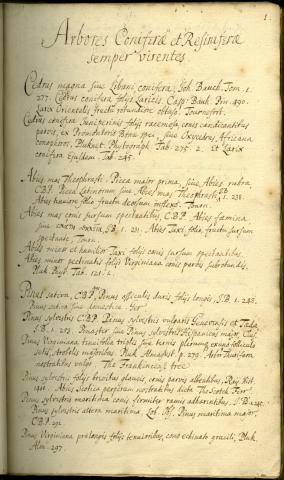 1.
Arbores Coniferæ et Resiniferæ
semper virentes.
Cedrus magna sive Libani conifera, Joh. Bauch. Tom. 1.
277. Cedrus conifera folijs Laricis. Casp. Bauk. Pin. 490.
Larix Orientalis fructu rotundiore obtuso. Tournefort.
Cedrus conifera Juniperinis folijs racemosa, conis candicantibus
parvis, ex Promontorio Bonæ spei, sive Oxycedrus Africana
conopoeos. Pluknet. Phytograph Tab. 275. 2. Et Larix
conifera Ejusdem. Tab. 245
Abies mas Theophrasti. Picea major prima, sive Abies rubra
C.B.P. Picea Latinorum sive Abies mas Theophrasti J.B. 1. 238.
Abies tenuiore folio fructu deorsum inflexo. Tourn.
Abies mas conis sursum spectantibus, C.B.P. Abies fæmina
sive J.B. 1. 231. Abies Taxi folio, fructu sursum
spectante. Tourn.
Abies minor et humilior Taxi folijs conis sursum spectantibus.
Abies minor pectinatis folijs Virginiana conis parvis subrotundis.
Pluk. Phyt. Tab. 121. 1.
Pinus sativa, C.B.P. Pinus officulis duris folijs longis, J.B. 1. 248.
Pinus sativa sive domestica. Ger.
Pinus sylvestris C.B.P. Pinus sylvestris vulgaris Genevensis et Tæda
J.B. 1. 253. Pinaster sive Pinus sylvestris Hispanicus major
Pinus Virginiana tenuifolia tripilis sive ternis plerumq. ex uno folliculo
setis, strobilis majoribus Pluk. Almagest. p. 297. Arbor Thurifera
nostratibus vulgo The Frankincense tree
Pinus sylvestris folijs brevibus glaucis conis parvis albentibus, Raij Hist.
1401. Abies Scotica perperam nostratibus dicta The Scotch Firr
Pinus sylvestris maritima conis firmiter ramis adhærentibus J.B. 1. 245.
Pinus sylvestris altera maritima, Lob. Pinus maritima major,
C.B.P. 492.
Pinus Virginiana prælongis folijs tenuioribus, cono echinato gracili, Pluk.
Alm. 297.